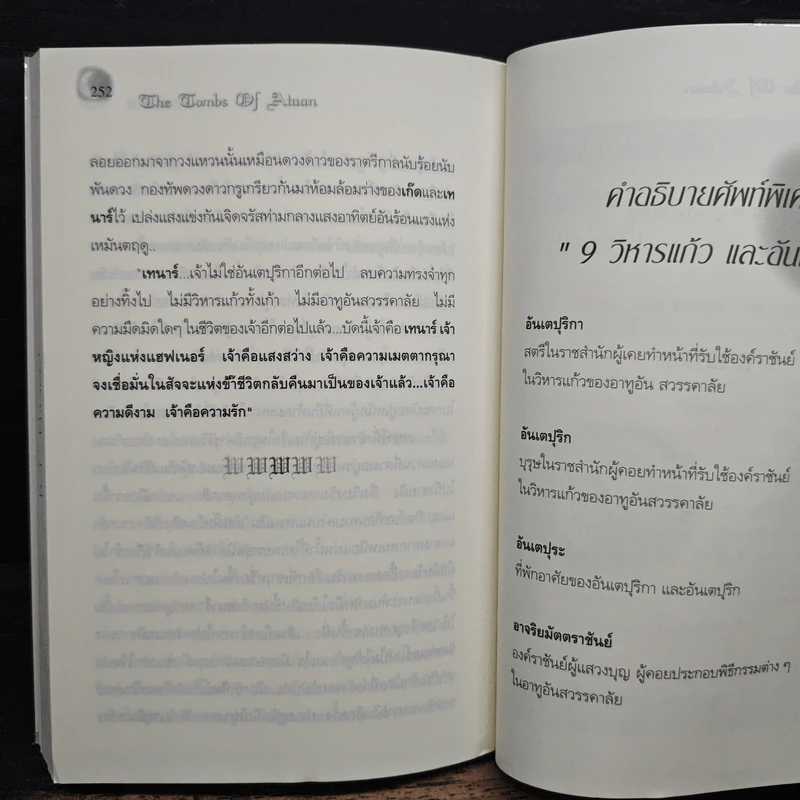 252
The Tombs Of Atuan
ลอยออกมาจากวงแหวนนั้นเหมือนดวงดาวของราตรีกาลนับร้อยนับ
พันดวง กองทัพดวงดาวกรูเกรียวกันมาห้อมล้อมร่างของเก๊ดและเท
นาร์ไว้ เปล่งแสงแข่งกันเจิดจรัสท่ามกลางแสงอาทิตย์อันร้อนแรงแห่ง
เหมันตฤดู..
"เทนาร์...เจ้าไม่ใช่อันเตปุริกาอีกต่อไป ลบความทรงจำทุก
อย่างทิ้งไป ไม่มีวิหารแก้วทั้งเก้า ไม่มีอาทูอันสวรรคาลัย ไม่มี
ความมืดมิดใดๆ ในชีวิตของเจ้าอีกต่อไปแล้ว...บัดนี้เจ้าคือ เทนาร์ เจ้า
หญิงแห่งแฮฟเนอร์ เจ้าคือแสงสว่าง เจ้าคือความเมตตากรุณา
จงเชื่อมั่นในสัจจะแห่งข้า ชีวิตกลับคืนมาเป็นของเจ้าแล้ว...เจ้าคือ
ความดีงาม เจ้าคือความรัก"
คำอธิบายศัพท์พิเศ
" 9 วิหารแก้ว และอัน
อันเตปุริกา
สตรีในราชสำนักผู้เคยทำหน้าที่รับใช้องค์ราชันย์
ในวิหารแก้วของอาทูอัน สวรรคาลัย
อันเตปุริก
บุรุษในราชสำนักผู้คอยทำหน้าที่รับใช้องค์ราชันย์
ในวิหารแก้วของอาทูอันสวรรคาลัย
อันเตปุระ
ที่พักอาศัยของอันเตปุริกา และอันเตปุริก
อาจริยมัตตราชันย์
องค์ราชันย์ผู้แสวงบุญ ผู้คอยประกอบพิธีกรรมต่าง ๆ
ในอาทูอันสวรรคาลัย